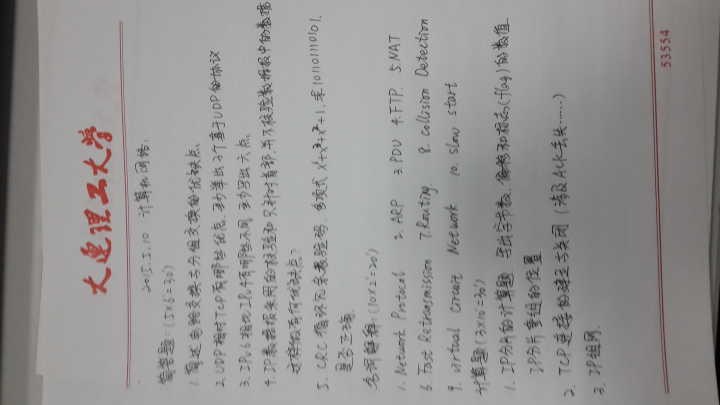 大连理工大学
2015.5.10 计算机网络.
简答题: (5×6'=30')
1. 简述电路交换与分组交换的优缺点.
2. UDP相对TCP有哪些优点. 至少举出3个基于UDP的协议
3. IPv6相比IPv4有哪些不同 至少写出六点.
4. IP数据报采用的校验和只针对首部,并不校验数据报中的数据
这样做有何优缺点?
5. CRC 循环冗余校验码. 多项式 x⁴+x³+x²+1, 求10110110101,
是否正确.
名词解释: (10×2'=20')
1. Network Protocol 2. ARP 3. PDU 4. FTP 5. NAT
6. Fast Retransmission 7. Routing 8. collision Detection
9. virtual circuit Network 10. slow start
计算题 (3×10'=30')
1. IP分片的计算题 写出字节数, 偏移和标志(flag)的数值
IP分片重组的位置
2. TCP连接的建立与关闭 (涉及ACK丢失……)
3. IP组网.
53554